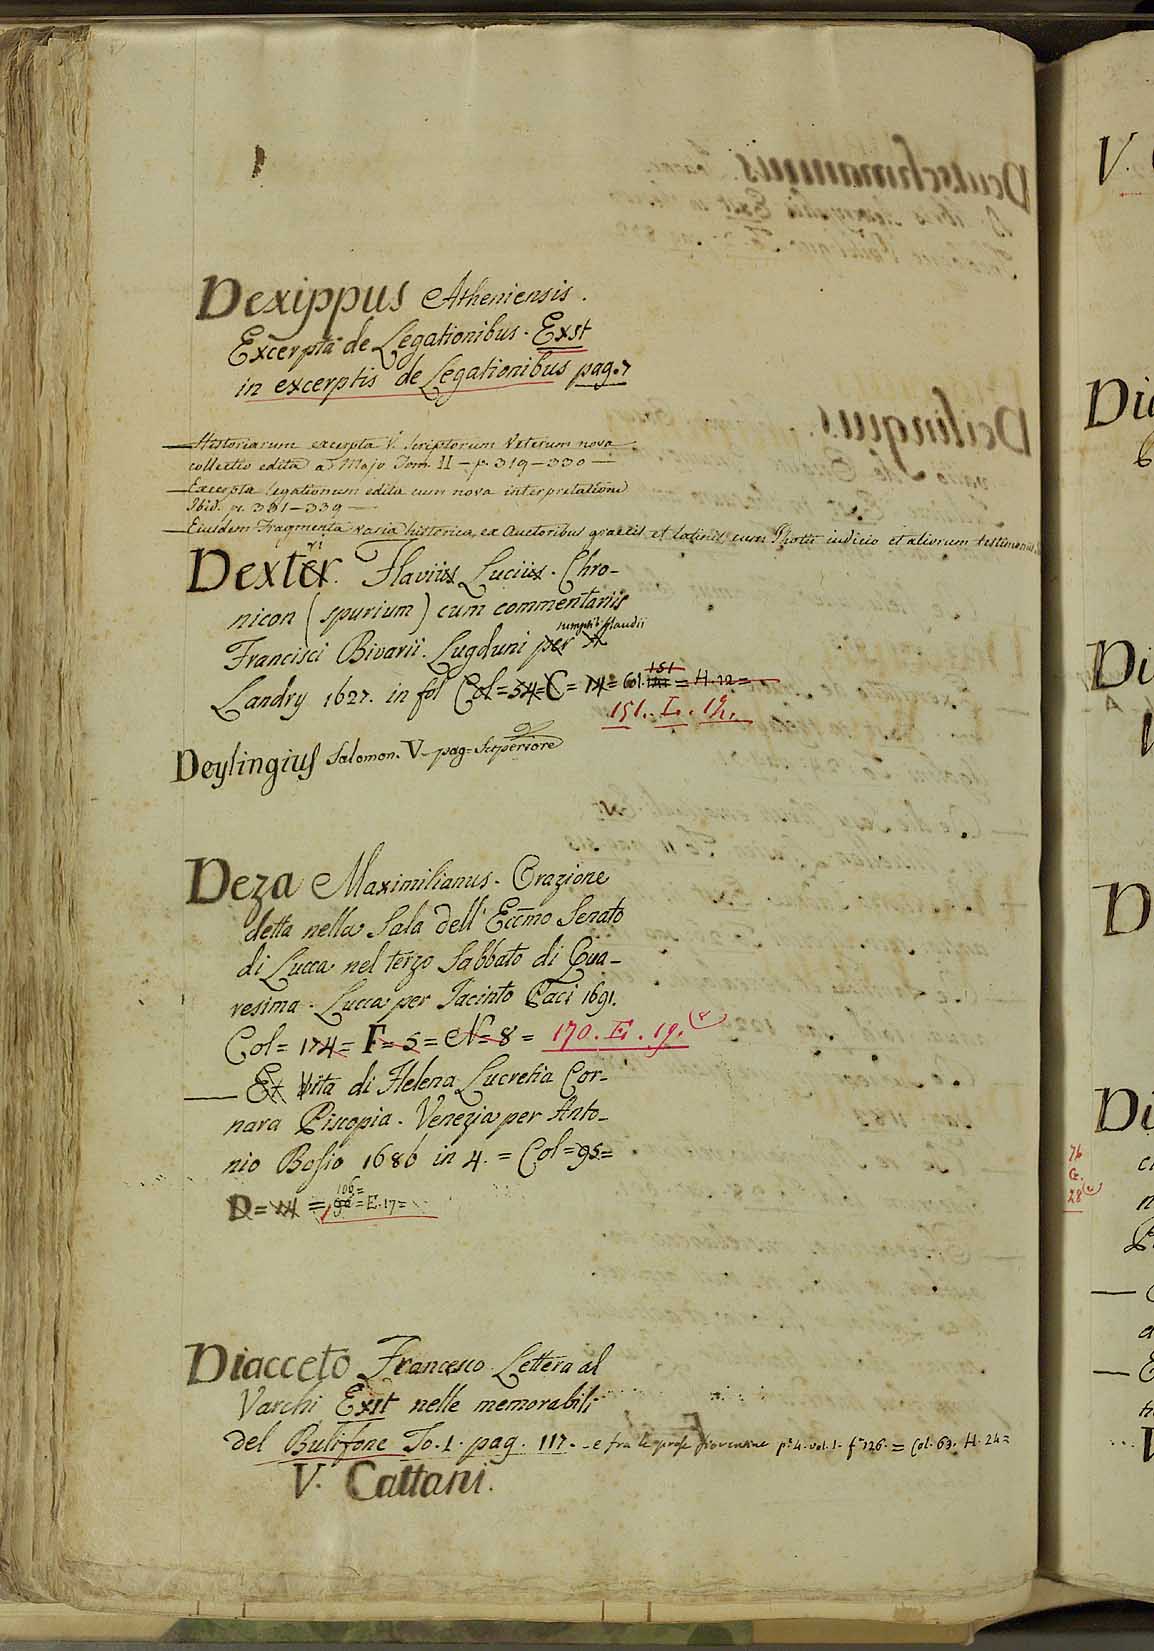 Dexippus Atheniensis.
Excerpta de Legationibus. Exst
in excerptis de Legationibus pag. 7
— Historiarum excerpta V. Scriptorum Veterum nova
collectio edita a Majo Tom. II – p. 319–330 —
— Excerpta legationum edita cum nova interpretatione
Ibid. p. 331–339 —
— Ejusdem Fragmenta varia historica, ex Auctoribus graecis et latinis, cum Photii iudicio et aliorum testimoniis
Dexter. Flavius Lucius. Chro-
nicon (spurium) cum commentariis
Francisci Bivarii. Lugduni per
sumptib. Claudii
Landry 1627. in fol Col = 54 = C = 14 = Col. 151 = H. 12 =
151. L. 12.
Deylingius Salomon. V. pag. Superiore
Deza Maximilianus. Orazione
detta nella Sala dell' Eccmo Senato
di Lucca nel terzo Sabbato di Qua-
resima. Lucca per Jacinto Paci 1691.
Col = 174 = F = 5 = N = 8 = 170. E. 19. (8
— Et Vita di Helena Lucretia Cor-
nara Piscopia. Venezia per Anto-
nio Bosio 1686 in 4. = Col = 95 =
D = 14 = 106 = E. 17 =
Diacceto Francesco Lettera al
Varchi Exst nelle memorabili
del Bulifone To. 1. pag. 117. – e fra le prose fiorentine p. 4. vol. 1. f. 126. = Col. 63. H. 24 =
V. Cattani.
V.
Di
D
76
G.
28